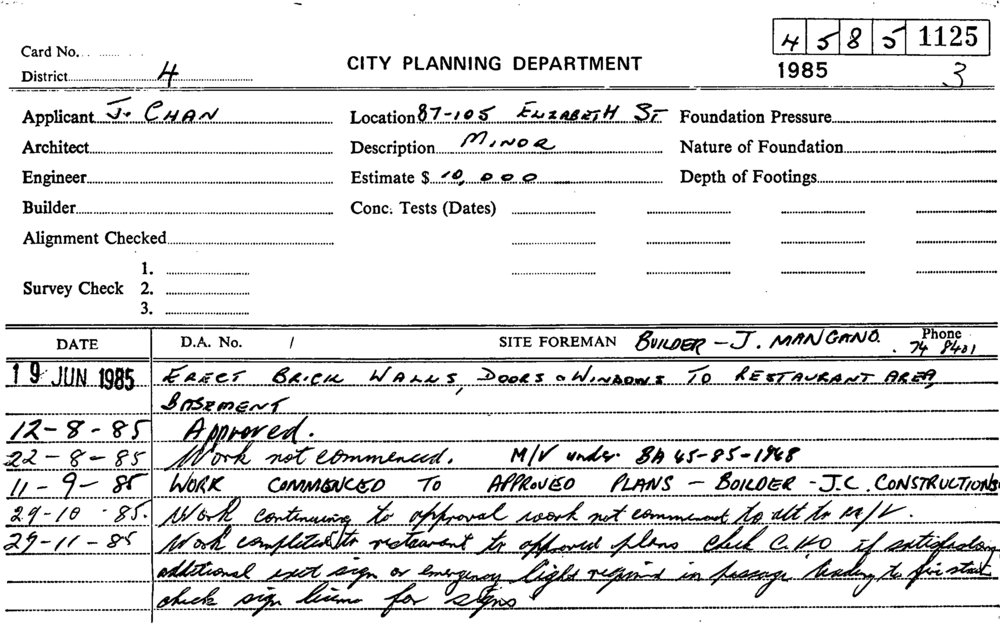 4 5 8 5 1125
Card No.
CITY PLANNING DEPARTMENT
1985 3
District 4
Applicant J. CHAN Location 87-105 ELIZABETH ST Foundation Pressure
Architect Description MINOR Nature of Foundation
Engineer Estimate $ 10,000 Depth of Footings
Builder Conc. Tests (Dates)
Alignment Checked
1.
Survey Check 2.
3.
DATE D.A. No. / SITE FOREMAN BUILDER - J. MANGANO. Phone 74 8401
19 JUN 1985 ERECT BRICK WALLS, DOORS & WINDOWS TO RESTAURANT AREA,
BASEMENT
12-8-85 Approved.
22-8-85 Work not commenced. M/V under BA 45-85-1968
11-9-85 WORK COMMENCED TO APPROVED PLANS - BUILDER - J.C. CONSTRUCTIONS
29-10-85. Work continuing to approval work not commenced to alt to M/V.
29-11-85 Work completed to restaurant to approved plans check C.H.O if satisfactory
additional exit sign or emergency light required in passage leading to fire stair
check sign license for signs